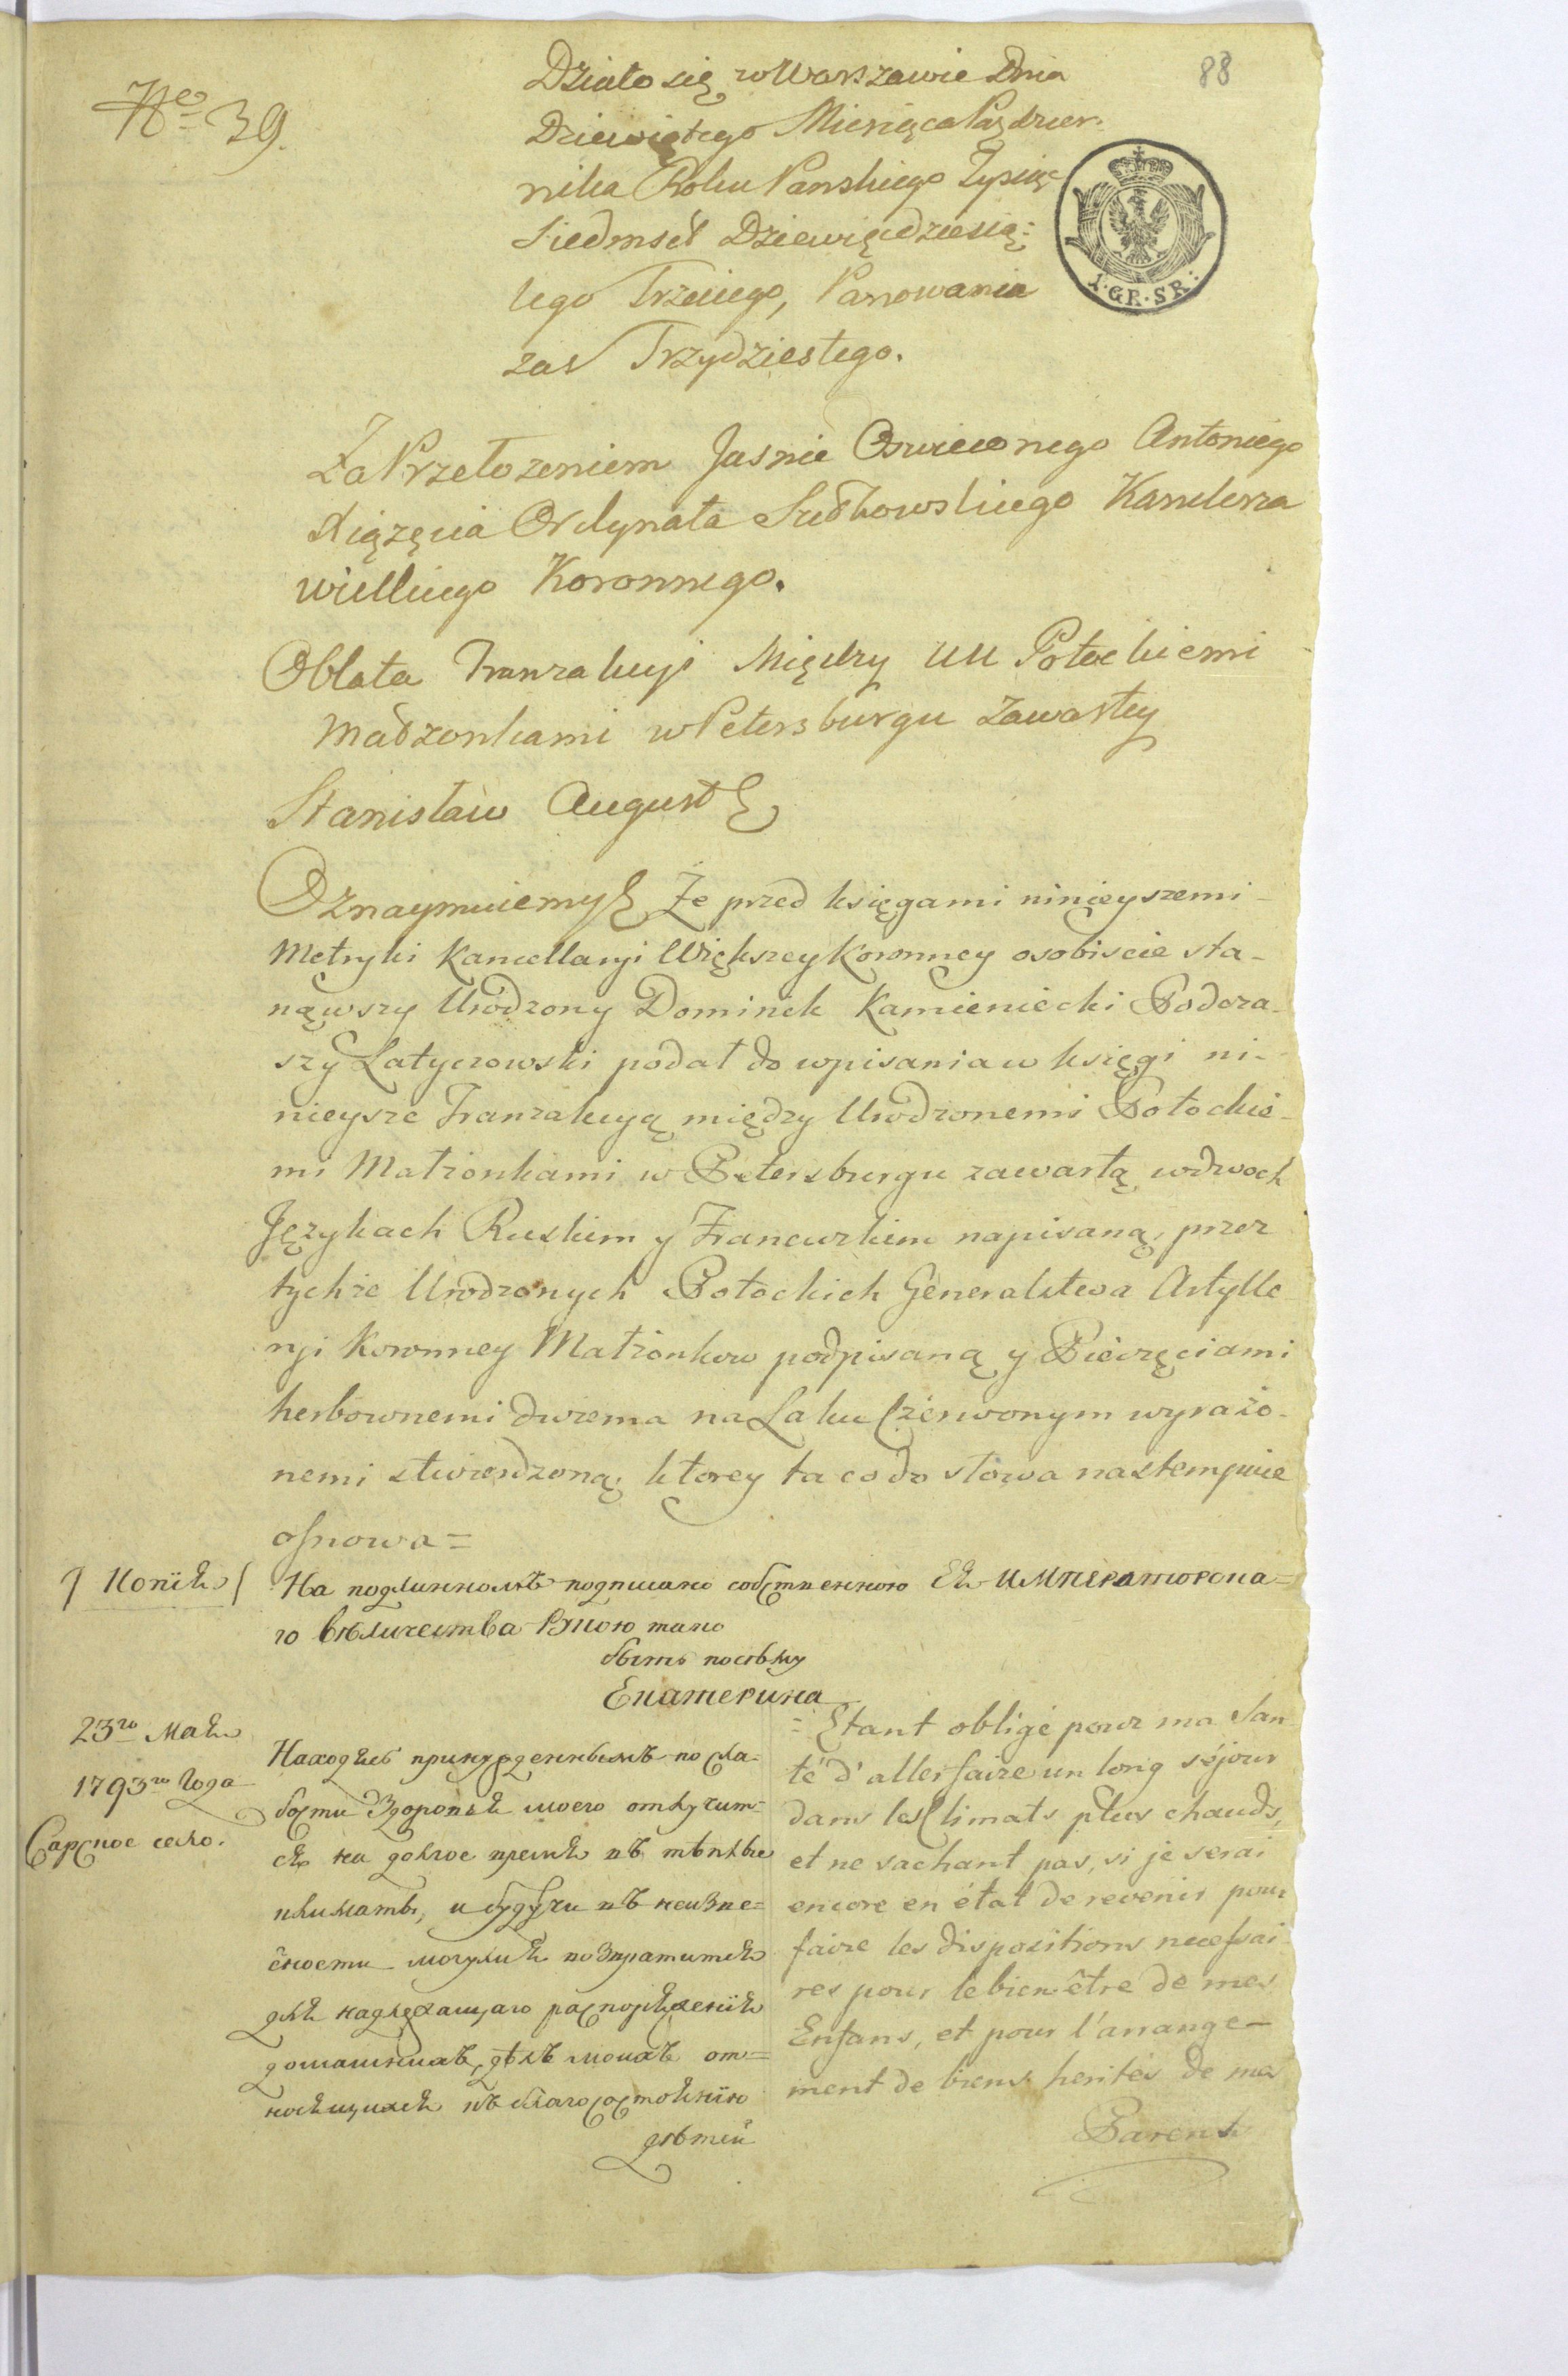 88
No 39.
Działo się w Warszawie Dnia
Dziewiątego Miesiąca Paździer-
nika Roku Panskiego Tysiąc
Siedmset Dziewięcdziesią-
tego Trzeciego, Panowania
zas Trzydziestego.
I. GR. SR.
Za Przełozeniem Jasnie Oswieconego Antoniego
Xiązęcia Ordynata Sułkowskiego Kanclerza
wielkiego Koronnego.
Oblata Tranzakcyi Między UU Potockiemi
Małzonkami w Petersburgu Zawartey
Stanisław August
Oznaymuiemy Że przed księgami ninieyszemi
Metryki Kancellaryi Większey Koronney osobiscie sta-
nąwszy Urodzony Dominik Kamieniecki Podcza-
szy Latyczowski podał do wpisania w księgi ni-
nieysze Tranzakcyą między Urodzonemi Potockie-
mi Małżonkami w Petersburgu zawartą w dwoch
Językach Ruskim y Francuzkim napisaną, przez
tychże Urodzonych Potockich Generalstwa Artylle-
ryi Koronney Małżonkow podpisaną y Pieczęciami
herbownemi dwiema na Laku Czerwonym wyrażo-
nemi stwierdzoną, ktorey ta co do słowa nastempuie
osnowa =
Копїя
На подлинномъ подписано собственною Ея Императорска-
го Величества Рукою тако
быть посѣму
Екатерина
23го Мая
1793го Года
Сарское село.
Находясь принужденнымъ по сла-
бости Здоровья моего отлучит-
ся на долгое время въ тѣплые
климаты, и будучи въ неизве-
сности могули я возвратится
для надлежащаго распоряженїя
домашнихъ дѣлъ моихъ от-
носящихся къ благосостоянїю
дѣтей
= Etant obligé pour ma San
té d'aller faire un long séjour
dans les Climats plus chauds,
et ne sachant pas, si je serai
encore en état de revenir pour
faire les dispositions necessai-
res pour le bien être de mes
Enfans, et pour l'arrange-
ment de biens herités de mes
Parents